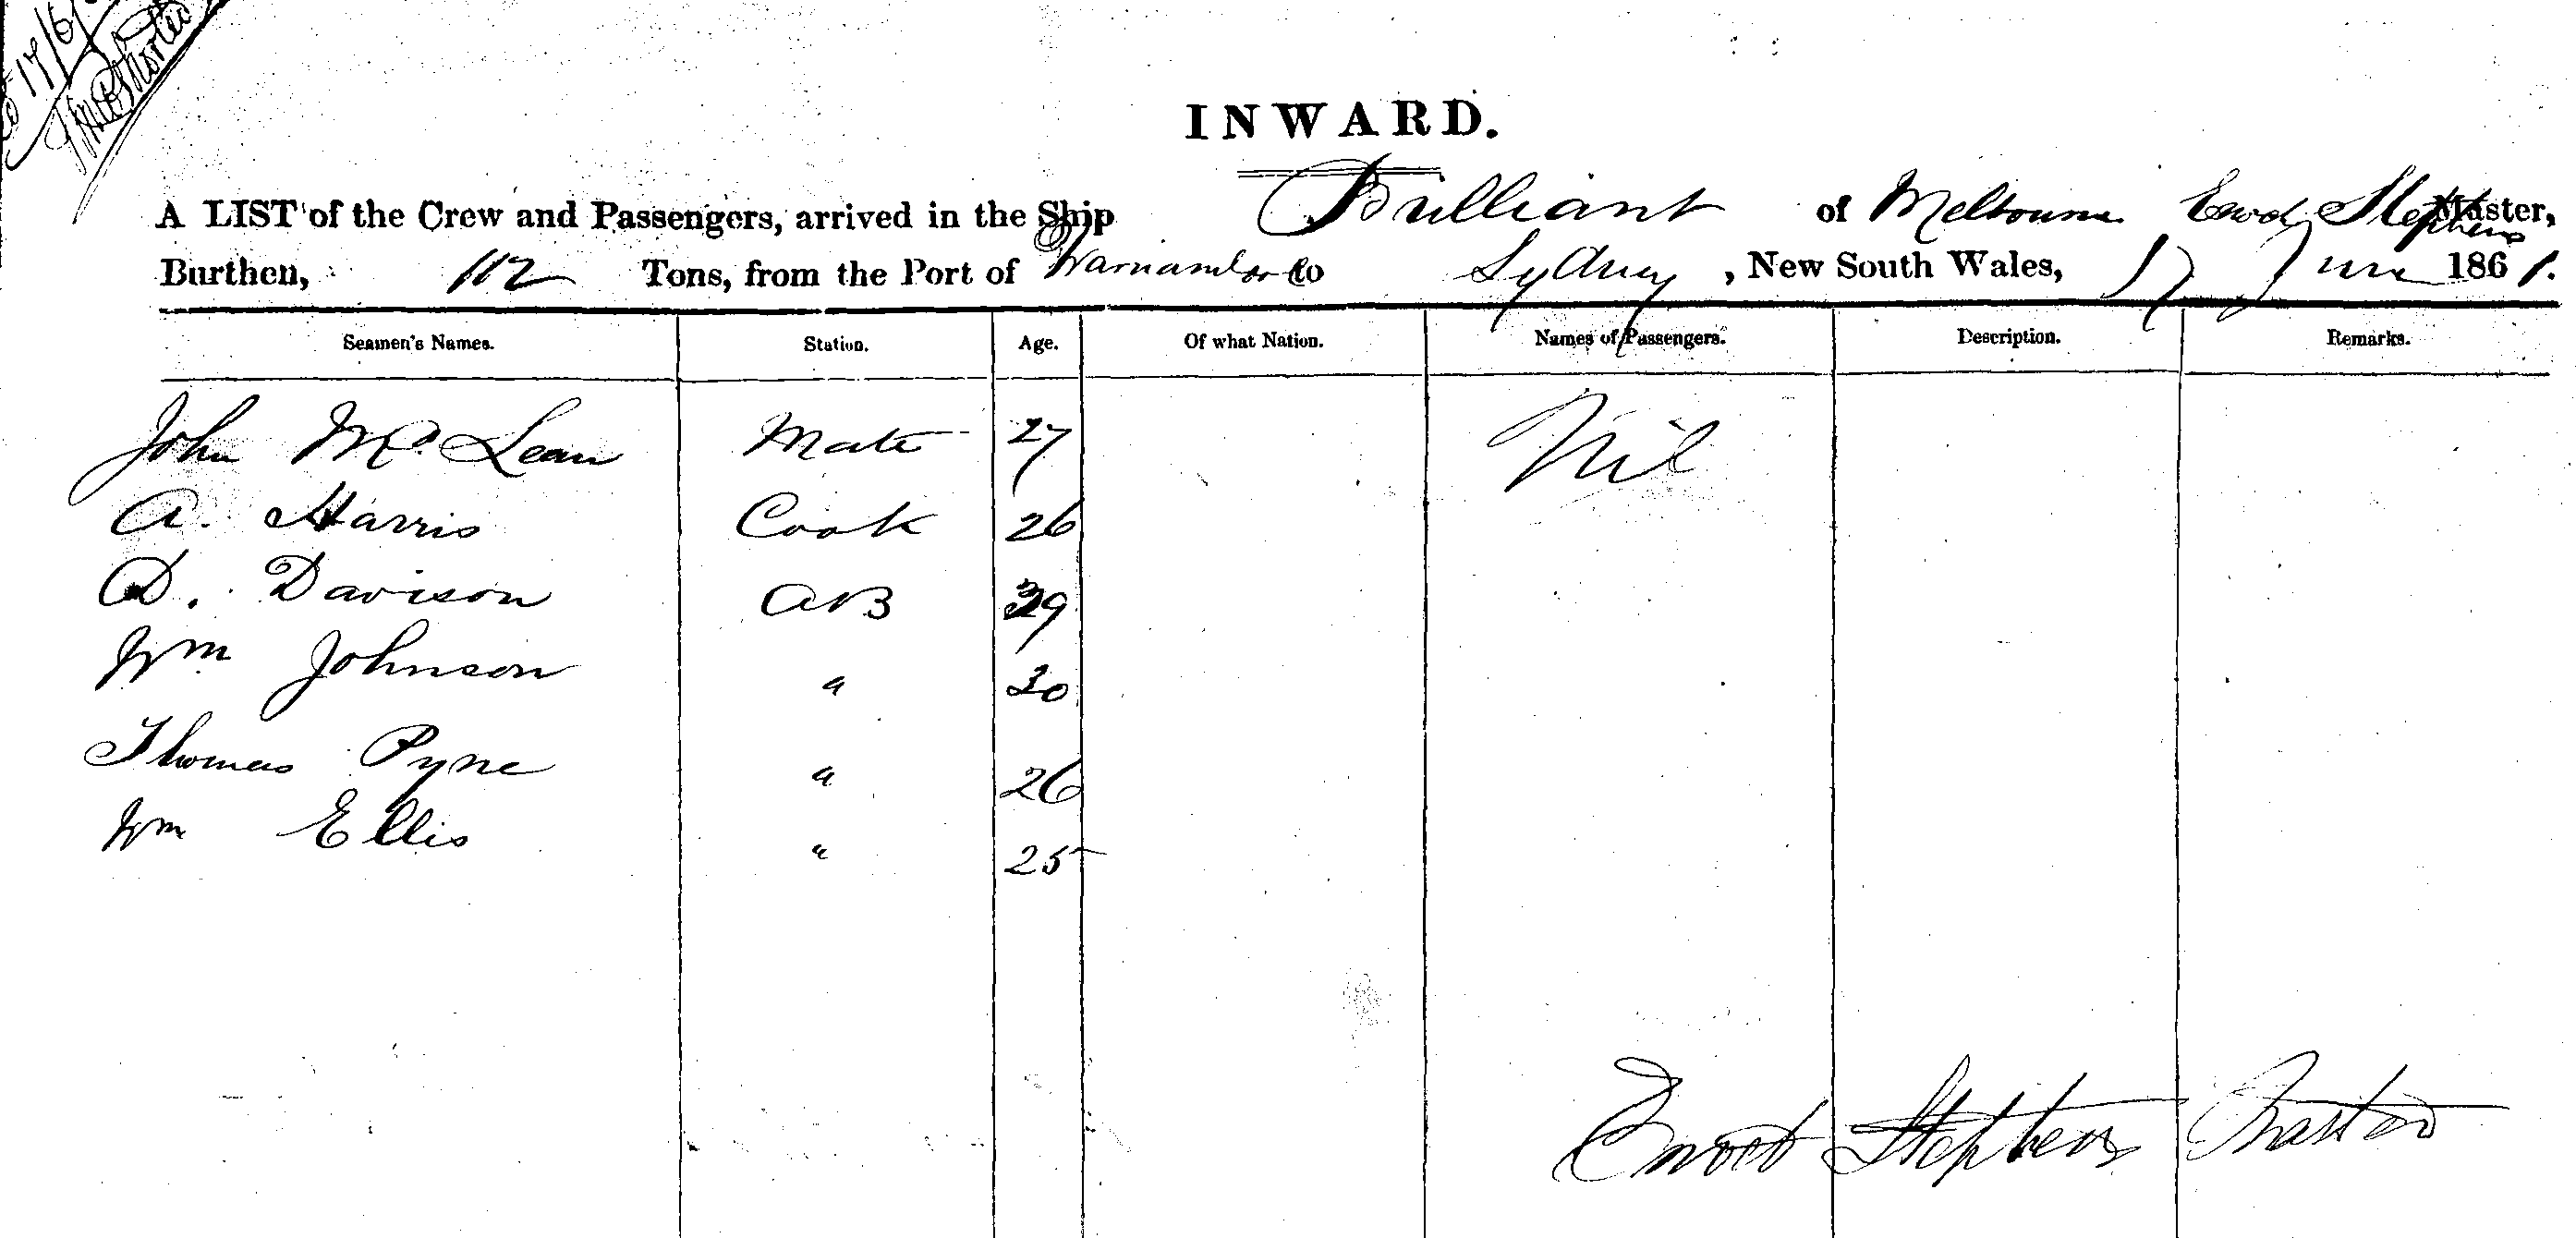 17/6/
INWARD.
A LIST of the Crew and Passengers, arrived in the Ship Brilliant of Melbourne Stephens Master,
Burthen, 112 Tons, from the Port of to Sydney, New South Wales, 17 June 1861.
Seamen's Names. Station. Age. Of what Nation. Names of Passengers. Description. Remarks.
John Mc Lean Mate 27 Nil
A. Harris Cook 26
D. Davison AB 39
Wm Johnson " 30
Thomas Pyne " 26
Wm Ellis " 25
Stephens Master